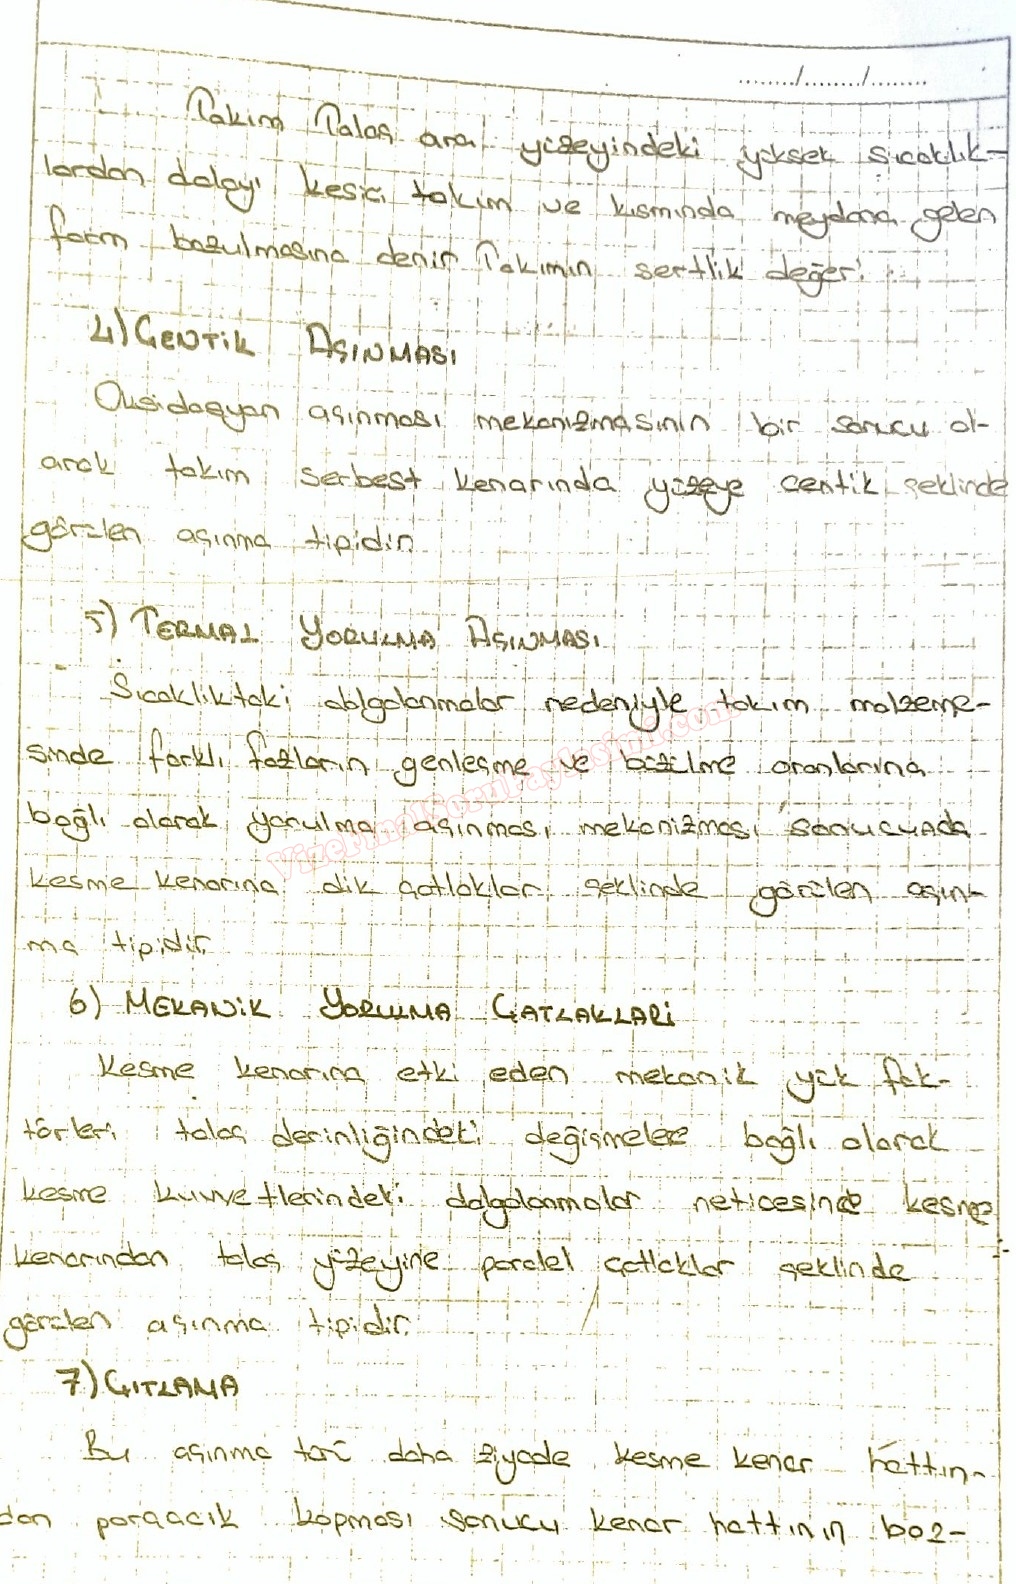 ......../......../........
Takım Talaş ara yüzeyindeki yüksek sıcaklık-
lardan dolayı kesici takım ve kısmında meydana gelen
form bozulmasına denir Takımın sertlik değeri
4) ÇENTİK AŞINMASI
Oksidasyon aşınması mekanizmasının bir sonucu ol-
arak takım serbest kenarında yüzeye çentik şeklinde
görülen aşınma tipidir.
5) TERMAL YORULMA AŞINMASI
Sıcaklıktaki dalgalanmalar nedeniyle takım malzeme-
sinde farklı fazların genleşme ve büzülme oranlarına
bağlı olarak yorulma aşınması mekanizması sonucunda
kesme kenarına dik çatlaklar şeklinde görülen aşın-
ma tipidir.
6) MEKANİK YORULMA ÇATLAKLARI
Kesme kenarına etki eden mekanik yük fak-
törleri talaş derinliğindeki değişmelere bağlı olarak
kesme kuvvetlerindeki dalgalanmalar neticesinde kesme
kenarından talaş yüzeyine paralel çatlaklar şeklinde
görülen aşınma tipidir.
7) ÇITLAMA
Bu aşınma türü daha ziyade kesme kenar hattın-
dan parçacık kopması sonucu kenar hattının boz-
VizeFinalSoruPaylasimi.com